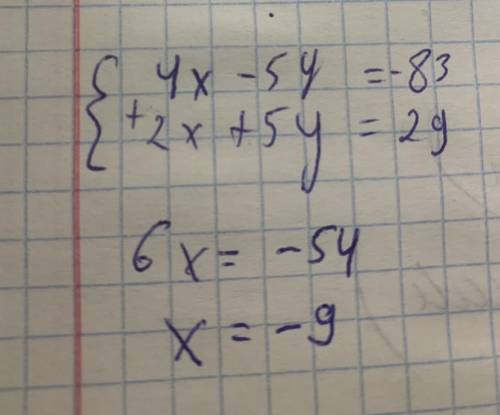 4x - 5y = -83
+ 2x + 5y = 29
6x = -54
x = -9